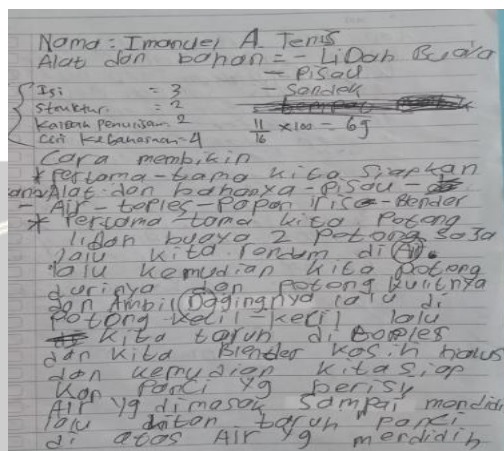 Nama = Imanuel A Tenis
Alat dan bahan = - LiDah Buaya
- Pisau
- Sendok
Isi = 3
Struktur = 2
Kaidah Penulisan 2
Ciri Kebahasaan = 4
11/16 x 100 = 69
Cara membikin
* Pertama-tama kita siapkan
Alat dan bahanya - Pisau -
- Air - toples - Papan iris - Blender
* Pertama-tama kita Potong
lidah buaya 2 Potong saja
lalu kita rendam di Air.
lalu kemudian kita potong
durinya dan potong kulitnya
dan Ambil Dagingnya lalu di
Potong kecil-kecil lalu
kita taruh di toples
dan kita Blender kasih halus
dan kemudian kita siap
kan Panci yg berisy
Air yg dimasak sampai mendidi
lalu taruh panci
di atas Air yg merdidih